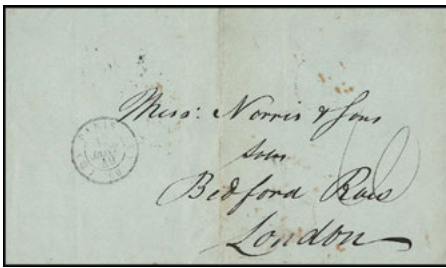 PARIS
Mess: Norris & Sons
Bedford Row
London